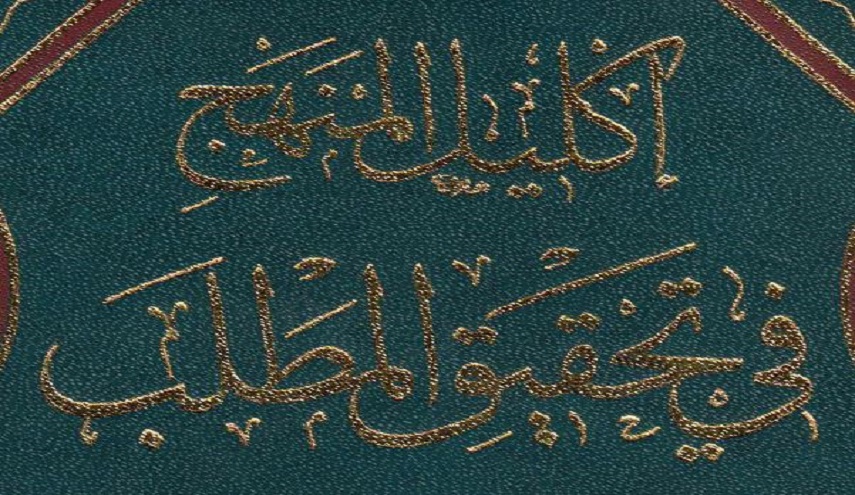 إكليل المنهج
في تحقيق المطلب